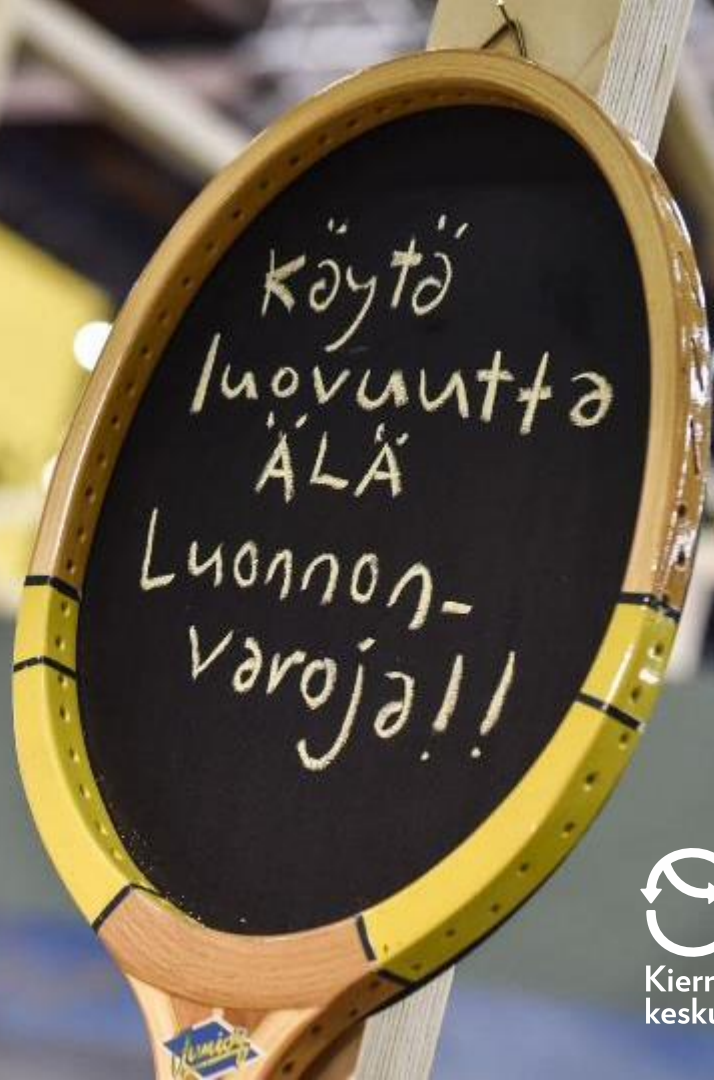 Käytä
luovuutta
ÄLÄ
Luonnon-
varoja!!
Junior
Kierr
kesku